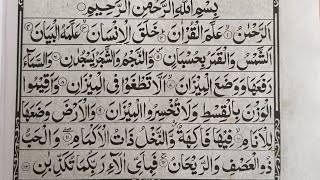 بِسْمِ اللّٰهِ الرَّحْمٰنِ الرَّحِيْمِ
اَلرَّحْمٰنُ ۙ﴿۱﴾ عَلَّمَ الْقُرْاٰنَ ؕ﴿۲﴾ خَلَقَ الْاِنْسَانَ ۙ﴿۳﴾ عَلَّمَهُ الْبَيَانَ ﴿۴﴾
اَلشَّمْسُ وَالْقَمَرُ بِحُسْبَانٍ ۪﴿۵﴾ وَّالنَّجْمُ وَالشَّجَرُ يَسْجُدٰنِ ﴿۶﴾ وَالسَّمَآءَ
رَفَعَهَا وَوَضَعَ الْمِيْزَانَ ۙ﴿۷﴾ اَلَّا تَطْغَوْا فِي الْمِيْزَانِ ﴿۸﴾ وَاَقِيْمُوا
الْوَزْنَ بِالْقِسْطِ وَلَا تُخْسِرُوا الْمِيْزَانَ ﴿۹﴾ وَالْاَرْضَ وَضَعَهَا
لِلْاَنَامِ ۙ﴿۱۰﴾ فِيْهَا فَاكِهَةٌ وَّالنَّخْلُ ذَاتُ الْاَكْمَامِ ۖ﴿۱۱﴾ وَالْحَبُّ
ذُو الْعَصْفِ وَالرَّيْحَانُ ۚ﴿۱۲﴾ فَبِاَيِّ اٰلَآءِ رَبِّكُمَا تُكَذِّبٰنِ ﴿۱۳﴾